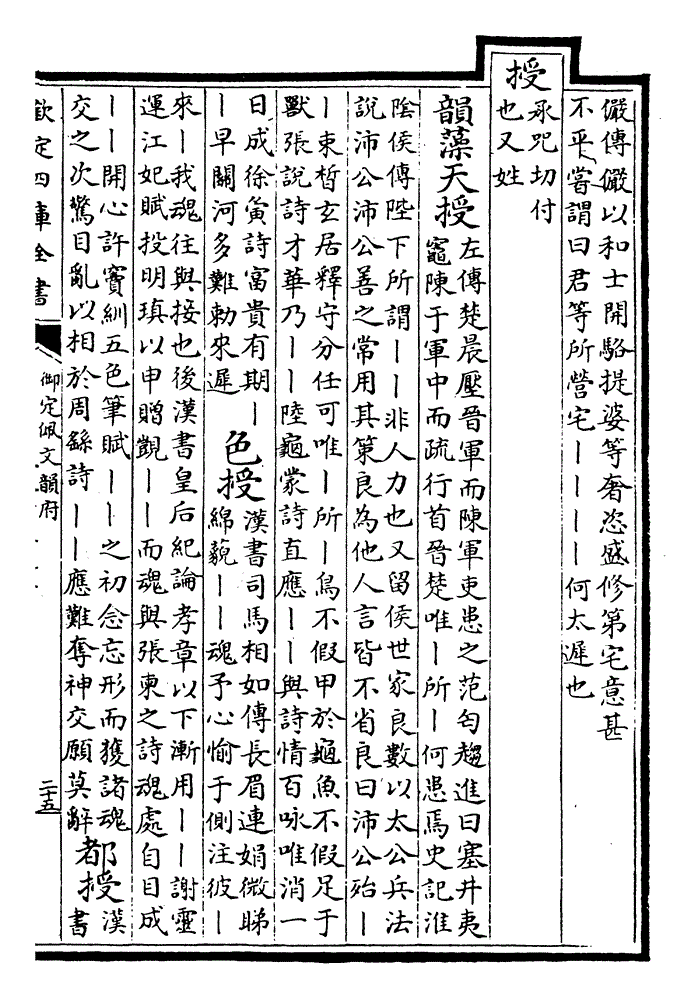 儼傳儼以和士開駱提婆等奢恣盛修第宅意甚
不平嘗謂曰君等所營宅丨丨丨丨何太遲也
授
承咒切付
也又姓
韻藻天授
左傳楚晨壓晉軍而陳軍吏患之范匄趨進曰塞井夷
竈陳于軍中而疏行首晉楚唯丨所丨何患焉史記淮
陰侯傳陛下所謂丨丨非人力也又留侯世家良數以太公兵法
說沛公沛公善之常用其策良為他人言皆不省良曰沛公殆丨
丨束晳玄居釋守分任可唯丨所丨鳥不假甲於龜魚不假足于
獸張說詩才華乃丨丨陸龜蒙詩直應丨丨與詩情百咏唯消一
日成徐夤詩富貴有期丨
丨早關河多難勅來遲
色授
漢書司馬相如傳長眉連娟微睇
綿藐丨丨魂予心愉于側注彼丨
來丨我魂往與接也後漢書皇后紀論孝章以下漸用丨丨謝靈
運江妃賦投明瑱以申贈覿丨丨而魂與張柬之詩魂處自目成
丨丨開心許竇紃五色筆賦丨丨之初念忘形而獲諸魂
交之次驚目亂以相於周繇詩丨丨應難奪神交願莫辭
都授
漢
書
欽定四庫全書
御定佩文韻府
二十五